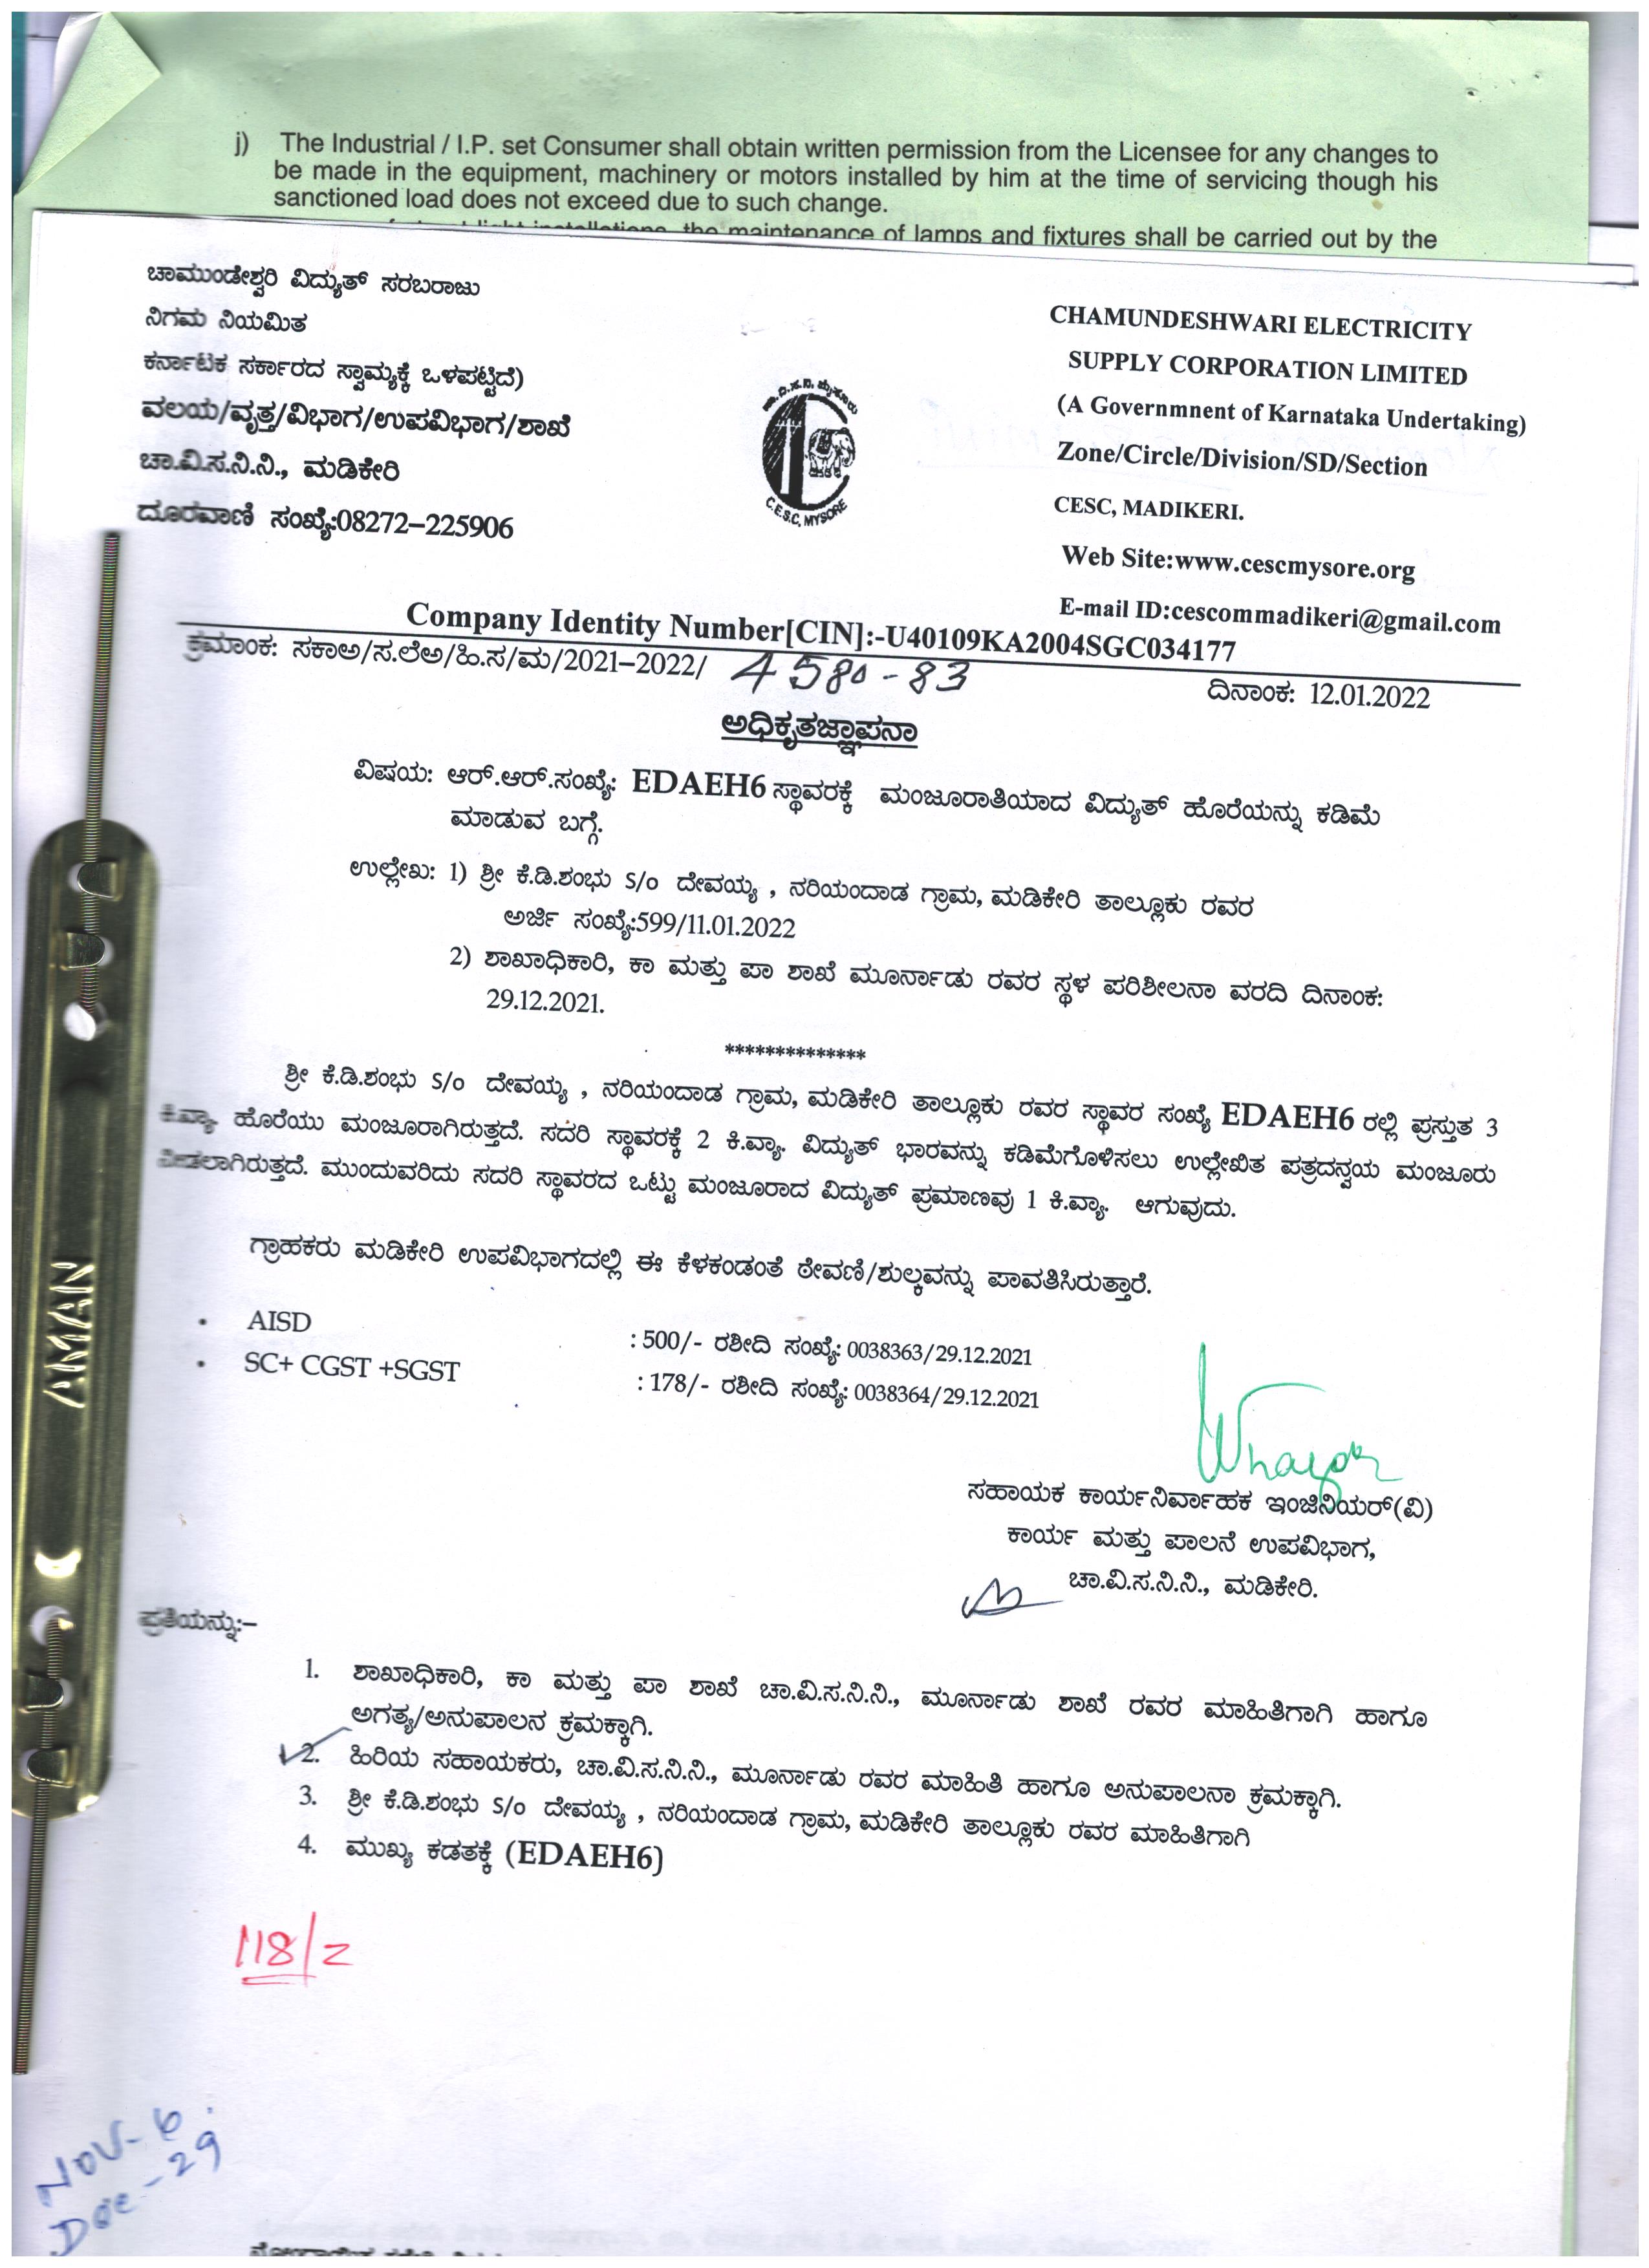 j) The Industrial / I.P. set Consumer shall obtain written permission from the Licensee for any changes to
be made in the equipment, machinery or motors installed by him at the time of servicing though his
sanctioned load does not exceed due to such change.
the maintenance of lamps and fixtures shall be carried out by the
ಚಾಮುಂಡೇಶ್ವರಿ ವಿದ್ಯುತ್ ಸರಬರಾಜು
ನಿಗಮ ನಿಯಮಿತ
ಕರ್ನಾಟಕ ಸರ್ಕಾರದ ಸ್ವಾಮ್ಯಕ್ಕೆ ಒಳಪಟ್ಟಿದೆ)
ವಲಯ/ವೃತ್ತ/ವಿಭಾಗ/ಉಪವಿಭಾಗ/ಶಾಖೆ
ಚಾ.ವಿ.ಸ.ನಿ.ನಿ., ಮಡಿಕೇರಿ
ದೂರವಾಣಿ ಸಂಖ್ಯೆ:08272-225906
ಚಾ.ವಿ.ಸ.ನಿ. ಮೈಸೂರು
C.E.S.C, MYSORE
CHAMUNDESHWARI ELECTRICITY
SUPPLY CORPORATION LIMITED
(A Governmnent of Karnataka Undertaking)
Zone/Circle/Division/SD/Section
CESC, MADIKERI.
Web Site:www.cescmysore.org
E-mail ID:cescommadikeri@gmail.com
Company Identity Number[CIN]:-U40109KA2004SGC034177
ಕ್ರಮಾಂಕ: ಸಕಾಅ/ಸ.ಲೆಅ/ಹಿ.ಸ/ಮ/2021-2022/ 4580-83
ದಿನಾಂಕ: 12.01.2022
ಅಧಿಕೃತಜ್ಞಾಪನಾ
ವಿಷಯ: ಆರ್.ಆರ್.ಸಂಖ್ಯೆ: EDAEH6 ಸ್ಥಾವರಕ್ಕೆ ಮಂಜೂರಾತಿಯಾದ ವಿದ್ಯುತ್ ಹೊರೆಯನ್ನು ಕಡಿಮೆ
ಮಾಡುವ ಬಗ್ಗೆ.
ಉಲ್ಲೇಖ: 1) ಶ್ರೀ ಕೆ.ಡಿ.ಶಂಭು S/o ದೇವಯ್ಯ , ನರಿಯಂದಾಡ ಗ್ರಾಮ, ಮಡಿಕೇರಿ ತಾಲ್ಲೂಕು ರವರ
ಅರ್ಜಿ ಸಂಖ್ಯೆ:599/11.01.2022
2) ಶಾಖಾಧಿಕಾರಿ, ಕಾ ಮತ್ತು ಪಾ ಶಾಖೆ ಮೂರ್ನಾಡು ರವರ ಸ್ಥಳ ಪರಿಶೀಲನಾ ವರದಿ ದಿನಾಂಕ:
29.12.2021.
**************
ಶ್ರೀ ಕೆ.ಡಿ.ಶಂಭು S/o ದೇವಯ್ಯ , ನರಿಯಂದಾಡ ಗ್ರಾಮ, ಮಡಿಕೇರಿ ತಾಲ್ಲೂಕು ರವರ ಸ್ಥಾವರ ಸಂಖ್ಯೆ EDAEH6 ರಲ್ಲಿ ಪ್ರಸ್ತುತ 3
ಕಿ.ವ್ಯಾ. ಹೊರೆಯು ಮಂಜೂರಾಗಿರುತ್ತದೆ. ಸದರಿ ಸ್ಥಾವರಕ್ಕೆ 2 ಕಿ.ವ್ಯಾ. ವಿದ್ಯುತ್ ಭಾರವನ್ನು ಕಡಿಮೆಗೊಳಿಸಲು ಉಲ್ಲೇಖಿತ ಪತ್ರದನ್ವಯ ಮಂಜೂರು
ನೀಡಲಾಗಿರುತ್ತದೆ. ಮುಂದುವರಿದು ಸದರಿ ಸ್ಥಾವರದ ಒಟ್ಟು ಮಂಜೂರಾದ ವಿದ್ಯುತ್ ಪ್ರಮಾಣವು 1 ಕಿ.ವ್ಯಾ. ಆಗುವುದು.
ಗ್ರಾಹಕರು ಮಡಿಕೇರಿ ಉಪವಿಭಾಗದಲ್ಲಿ ಈ ಕೆಳಕಂಡಂತೆ ಠೇವಣಿ/ಶುಲ್ಕವನ್ನು ಪಾವತಿಸಿರುತ್ತಾರೆ.
• AISD : 500/- ರಶೀದಿ ಸಂಖ್ಯೆ: 0038363/29.12.2021
• SC+ CGST +SGST : 178/- ರಶೀದಿ ಸಂಖ್ಯೆ: 0038364/29.12.2021
ಸಹಾಯಕ ಕಾರ್ಯನಿರ್ವಾಹಕ ಇಂಜಿನಿಯರ್(ವಿ)
ಕಾರ್ಯ ಮತ್ತು ಪಾಲನೆ ಉಪವಿಭಾಗ,
ಚಾ.ವಿ.ಸ.ನಿ.ನಿ., ಮಡಿಕೇರಿ.
ಪ್ರತಿಯನ್ನು:-
1. ಶಾಖಾಧಿಕಾರಿ, ಕಾ ಮತ್ತು ಪಾ ಶಾಖೆ ಚಾ.ವಿ.ಸ.ನಿ.ನಿ., ಮೂರ್ನಾಡು ಶಾಖೆ ರವರ ಮಾಹಿತಿಗಾಗಿ ಹಾಗೂ
ಅಗತ್ಯ/ಅನುಪಾಲನ ಕ್ರಮಕ್ಕಾಗಿ.
2. ಹಿರಿಯ ಸಹಾಯಕರು, ಚಾ.ವಿ.ಸ.ನಿ.ನಿ., ಮೂರ್ನಾಡು ರವರ ಮಾಹಿತಿ ಹಾಗೂ ಅನುಪಾಲನಾ ಕ್ರಮಕ್ಕಾಗಿ.
3. ಶ್ರೀ ಕೆ.ಡಿ.ಶಂಭು S/o ದೇವಯ್ಯ , ನರಿಯಂದಾಡ ಗ್ರಾಮ, ಮಡಿಕೇರಿ ತಾಲ್ಲೂಕು ರವರ ಮಾಹಿತಿಗಾಗಿ
4. ಮುಖ್ಯ ಕಡತಕ್ಕೆ (EDAEH6)
118/2
NOV-6.
Dec-29
AMAN